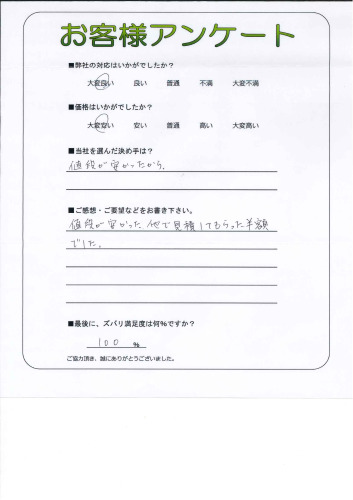 お客様アンケート
■弊社の対応はいかがでしたか？
大変良い 良い 普通 不満 大変不満
■価格はいかがでしたか？
大変安い 安い 普通 高い 大変高い
■当社を選んだ決め手は？
値段が安かったから。
■ご感想・ご要望などをお書き下さい。
値段が安かった 他で見積してもらった半額
でした。
■最後に、ズバリ満足度は何%ですか？
100 %
ご協力頂き、誠にありがとうございました。